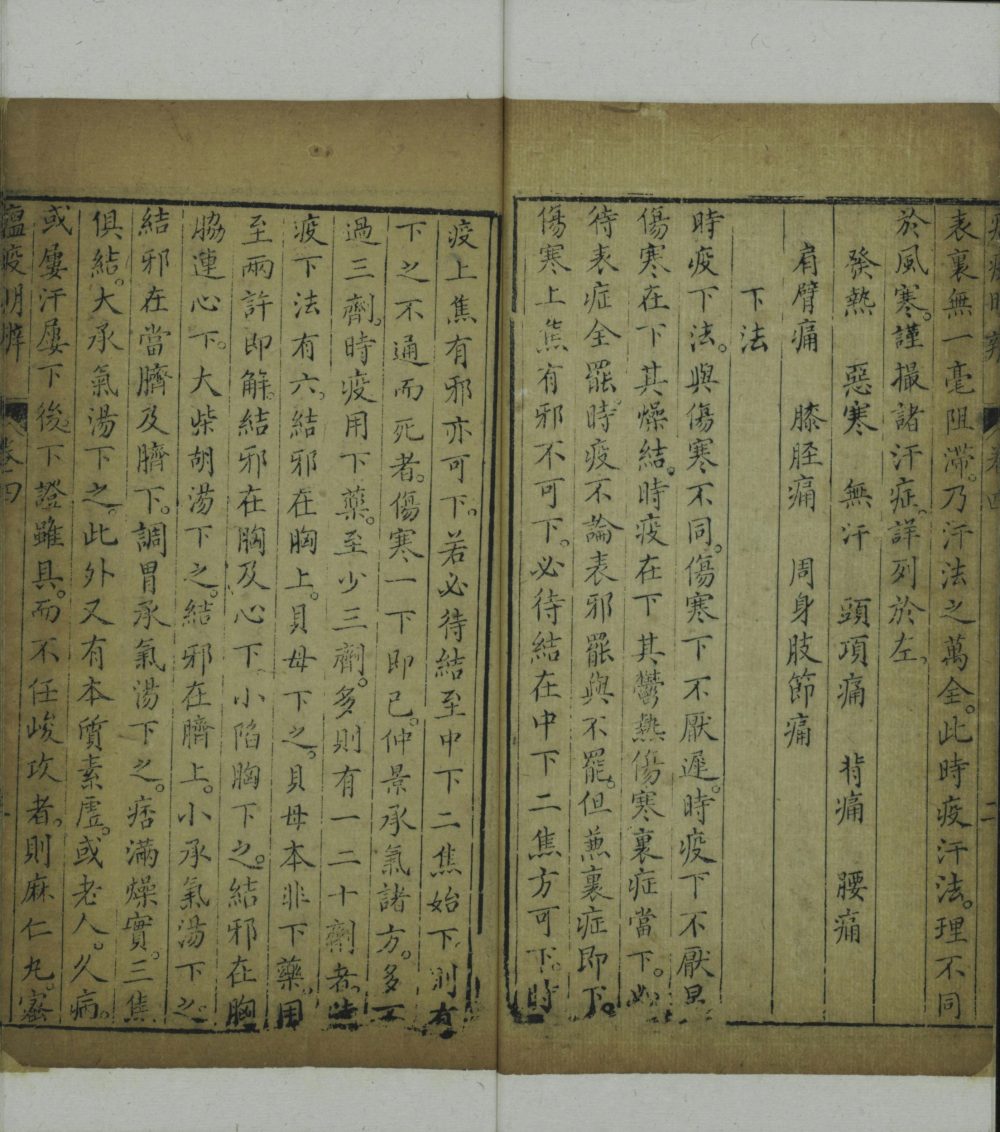 表裏無一毫阻滯。乃汗法之萬全。此時疫汗法。理不同
於風寒。謹撮諸汗症。詳列於左。
發熱　惡寒　無汗　頭項痛　背痛　腰痛
肩臂痛　膝脛痛　周身肢節痛
下法
時疫下法。與傷寒不同。傷寒下不厭遲。時疫下不厭早
傷寒在下其燥結。時疫在下其鬱熱傷寒裏症當下。必
待表症全罷。時疫不論表邪罷與不罷。但兼裏症即下。
傷寒上焦有邪不可下。必待結在中下二焦方可下。時
疫上焦有邪亦可下。若必待結至中下二焦始下、則有
下之不通而死者。傷寒一下即已。仲景承氣諸方。多不
過三劑。時疫用下藥。至少三劑。多則有一二十劑者。
疫下法有六。結邪在胸上。貝母下之。貝母本非下藥。用
至兩許即解。結邪在胸及心下、小陷胸下之。結邪在胸
脇連心下。大柴胡湯下之。結邪在臍上。小承氣湯下之。
結邪在當臍及臍下。調胃承氣湯下之。痞滿燥實。三焦
俱結。大承氣湯下之。此外又有本質素虛。或老人。久病。
或屢汗屢下後。下證雖具。而不任峻攻者。則麻仁丸。蜜
瘟疫明辨　卷四
卷四　二